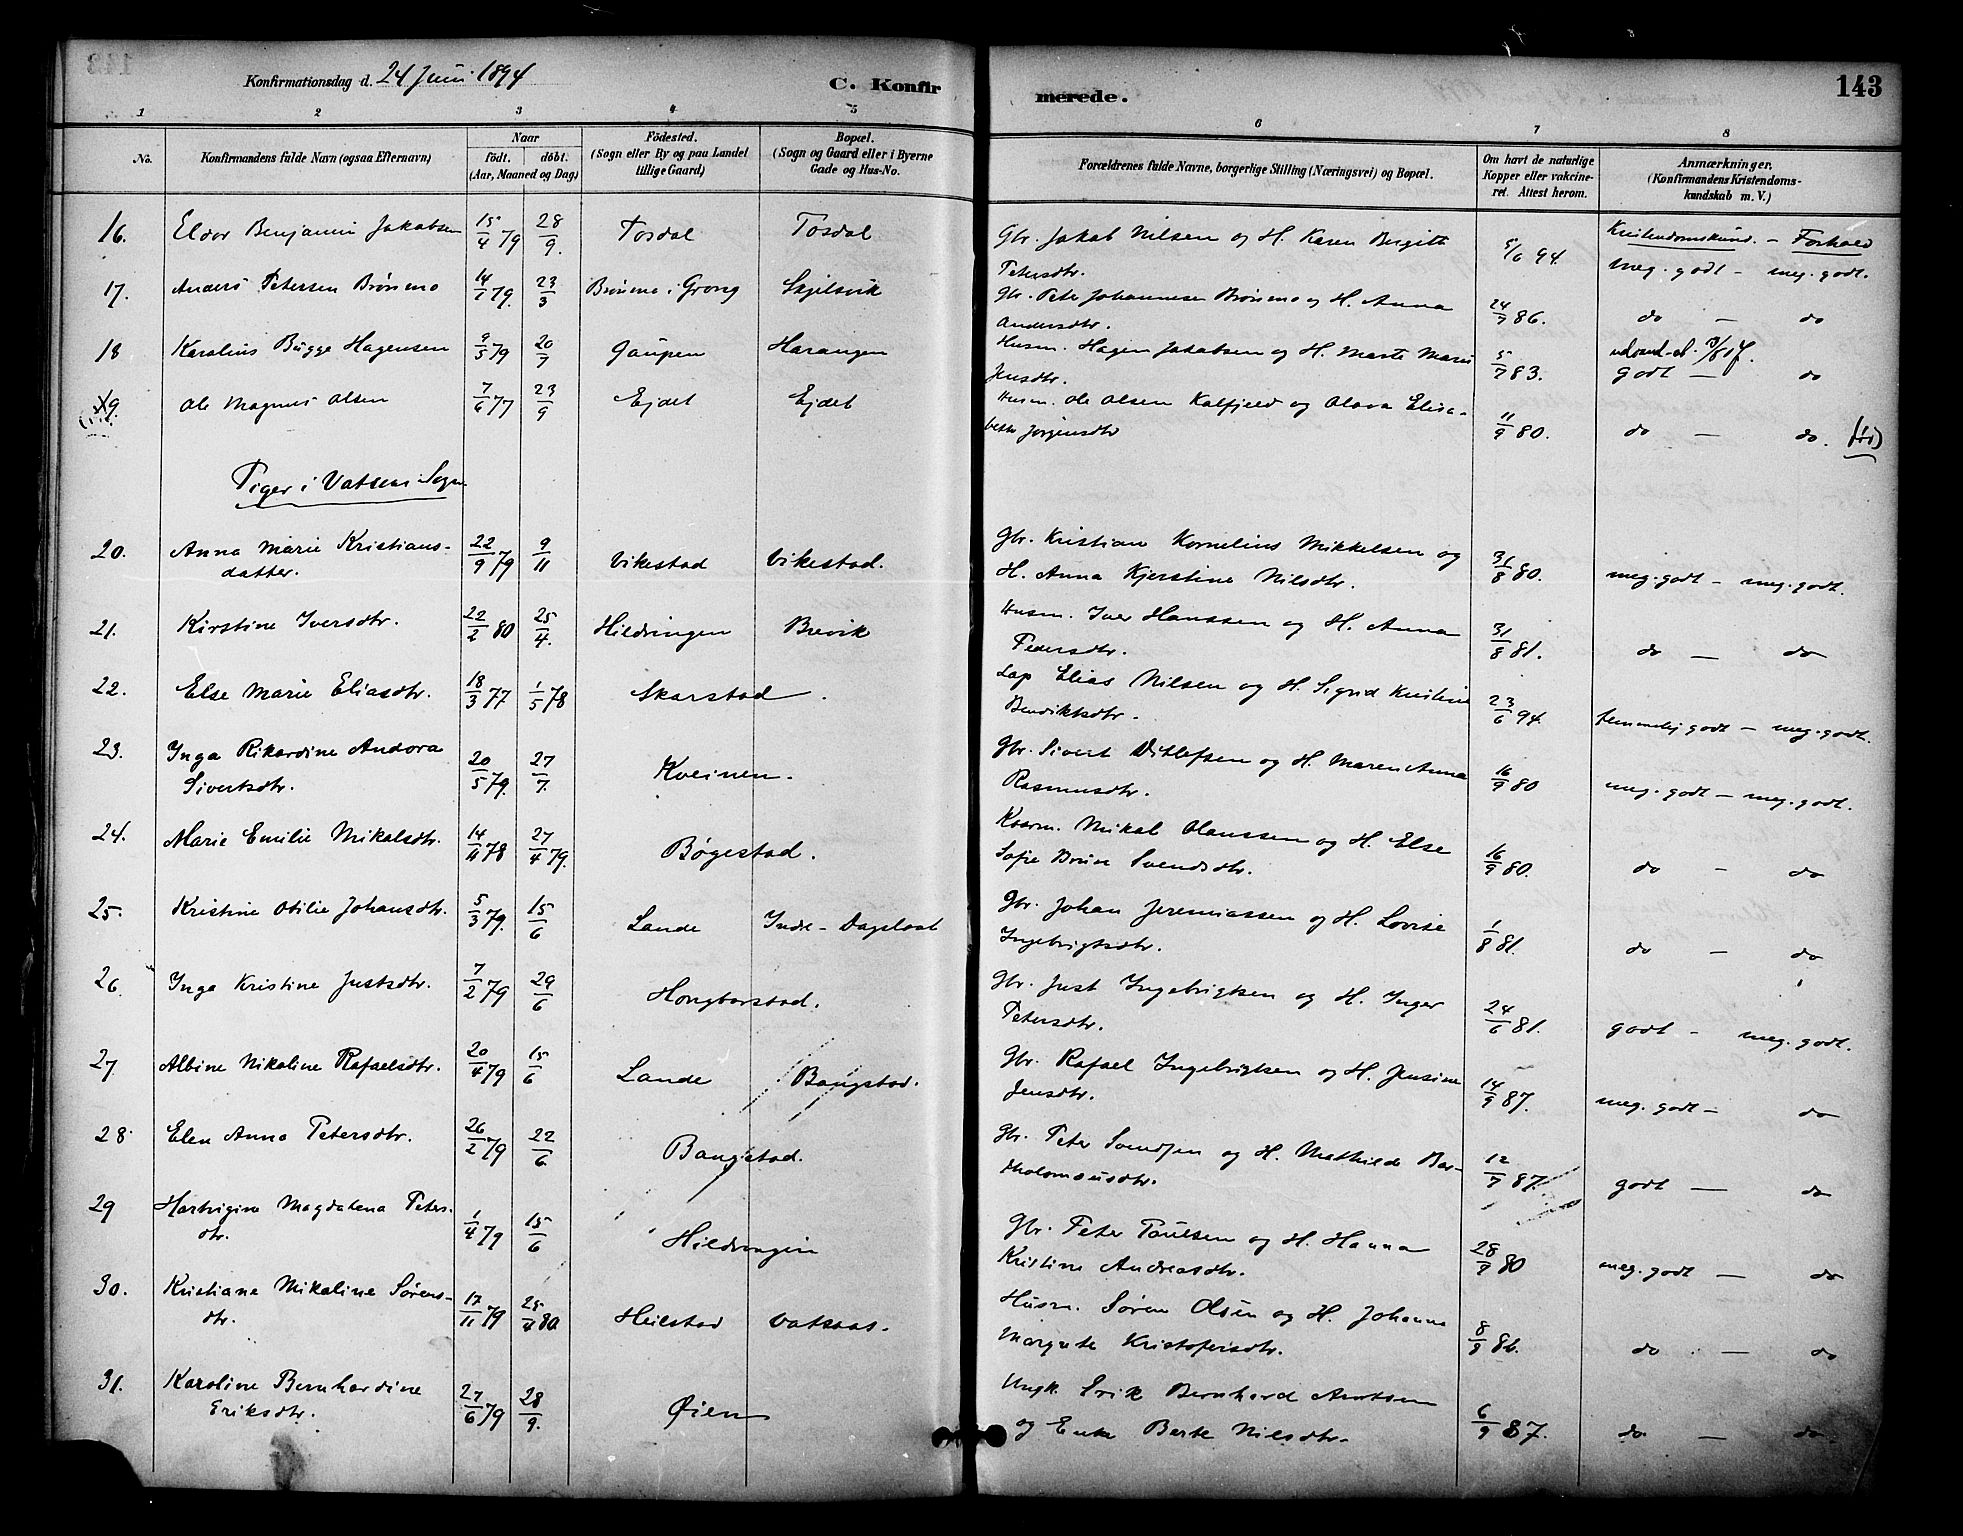 Konfirmationsdag d. 24 Juni 1894
C. Konfirmerede.
143
1 2 3 4 5 6 7 8
No.
Konfirmandens fulde Navn (ogsaa Efternavn)
Naar
födt. döbt.
(Aar, Maaned og Dag)
Födested.
(Sogn eller By og paa Landet
tillige Gaard)
Bopæl.
(Sogn og Gaard eller i Byerne
Gade og Hus-No.
Forældrenes fulde Navne, borgerlige Stilling (Næringsvei) og Bopæl.
Om havt de naturlige
Kopper eller vakcine-
ret. Attest herom.
Anmærkninger.
(Konfirmandens Kristendoms-
kundskab m. V.)
Kristendomskund. – Forhold
16. Eldor Benjamin Jakobsen 15/4 79 28/9. Tosdal Tosdal Gbr. Jakob Nilsen og H. Karen Birgitte
Petersdtr. 5/6 94. meg. godt – meg. godt.
17. Anders Petersen Brønmo 14/1 79. 23/3 Brønmo i Grong Skjelsvik Gbr. Peter Johannesen Brønmo og H. Anna
Andersdtr. 24/9 86. do – do
18 Karolius Bugge Hagensen 9/5 79 20/7 Gaupen Harangen Husm. Hagen Jakobsen og H. Marte Marie
Jensdtr. 5/7 83. godt – do
19. Ole Magnus Olsen 7/6 77 23/9 Ejdet Ejdet Husm. Ole Olsen Kalfjeld og Olava Elisa-
beth Jørgensdtr 11/9 80. do – do.
Piger i Vatsens Sogn
20. Anna Marie Kristians-
datter. 22/9 79 9/11 Vikestad Vikestad. Gbr. Kristian Kornelius Mikkelsen og
H. Anna Kjerstine Nilsdtr. 31/8 80. meg. godt – meg. godt.
21. Kirstine Iversdtr. 22/2 80 25/4. Hildringen Brevik Husm. Iver Hanssen og H. Anna
Pedersdtr. 31/8 81. do – do
22. Else Marie Eliasdtr. 18/3 77 1/5 78 Skarstad. Lap Elias Nilsen og H. Sigrid Kristine
Bendiktsdtr. 23/6 94. temmelig godt – meg. godt.
23. Inga Rikardine Andora
Sivertsdtr. 20/5 79. 27/7. Kveinen. Gbr. Sivert Ditlefsen og H. Maren Anna
Rasmusdtr. 16/9 80 meg. godt – meg. godt.
24. Marie Emilie Mikalsdtr. 14/11 78 27/4 79. Bøgestad. Kaarm. Mikal Olaussen og H. Else
Sofie Brun Svendsdtr. 16/9 80. do – do
25. Kristine Otilie Johansdtr. 5/3 79. 15/6 Lande Indre-Dagslaat Gbr. Johan Jeremiassen og H. Lovise
Ingebrigtsdtr. 1/8 81. do – do
26. Inga Kristine Justsdtr. 7/2 79 29/6 Hongbarstad. Gbr. Just Ingebrigtsen og H. Inger
Petersdtr. 24/6 81. godt – meg. godt.
27 Albine Nikoline Rafaelsdtr. 20/4 79 15/6 Lande Bangstad. Gbr. Rafael Ingebrigtsen og H. Jensine
Jensdtr. 14/9 87. meg. godt – do
28. Elen Anna Petersdtr. 26/2 79 22/6 Bangstad. Gbr. Peter Svendsen og H. Mathilde Bar-
tholomæusdtr. 12/7 87. godt – do
29 Hartvigine Magdalena Peters-
dtr. 1/4 79 15/6 Hildringen Gbr. Peter Paulsen og H. Hanna
Kristine Andreasdtr. 28/9 80 meg. godt – do
30. Kristiane Mikaline Sørens-
dtr. 17/11 79 25/4 80 Heilstad Vatsaas. Husm. Søren Olsen og H. Johanna
Margrete Kristofersdtr. 8/9 86. do – do
31. Karoline Bernhardine
Eriksdtr. 27/6 79 28/9. Øien Ungk. Erik Bernhard Arntsen
og Enke Berte Nilsdtr. 6/9 87. do – do.